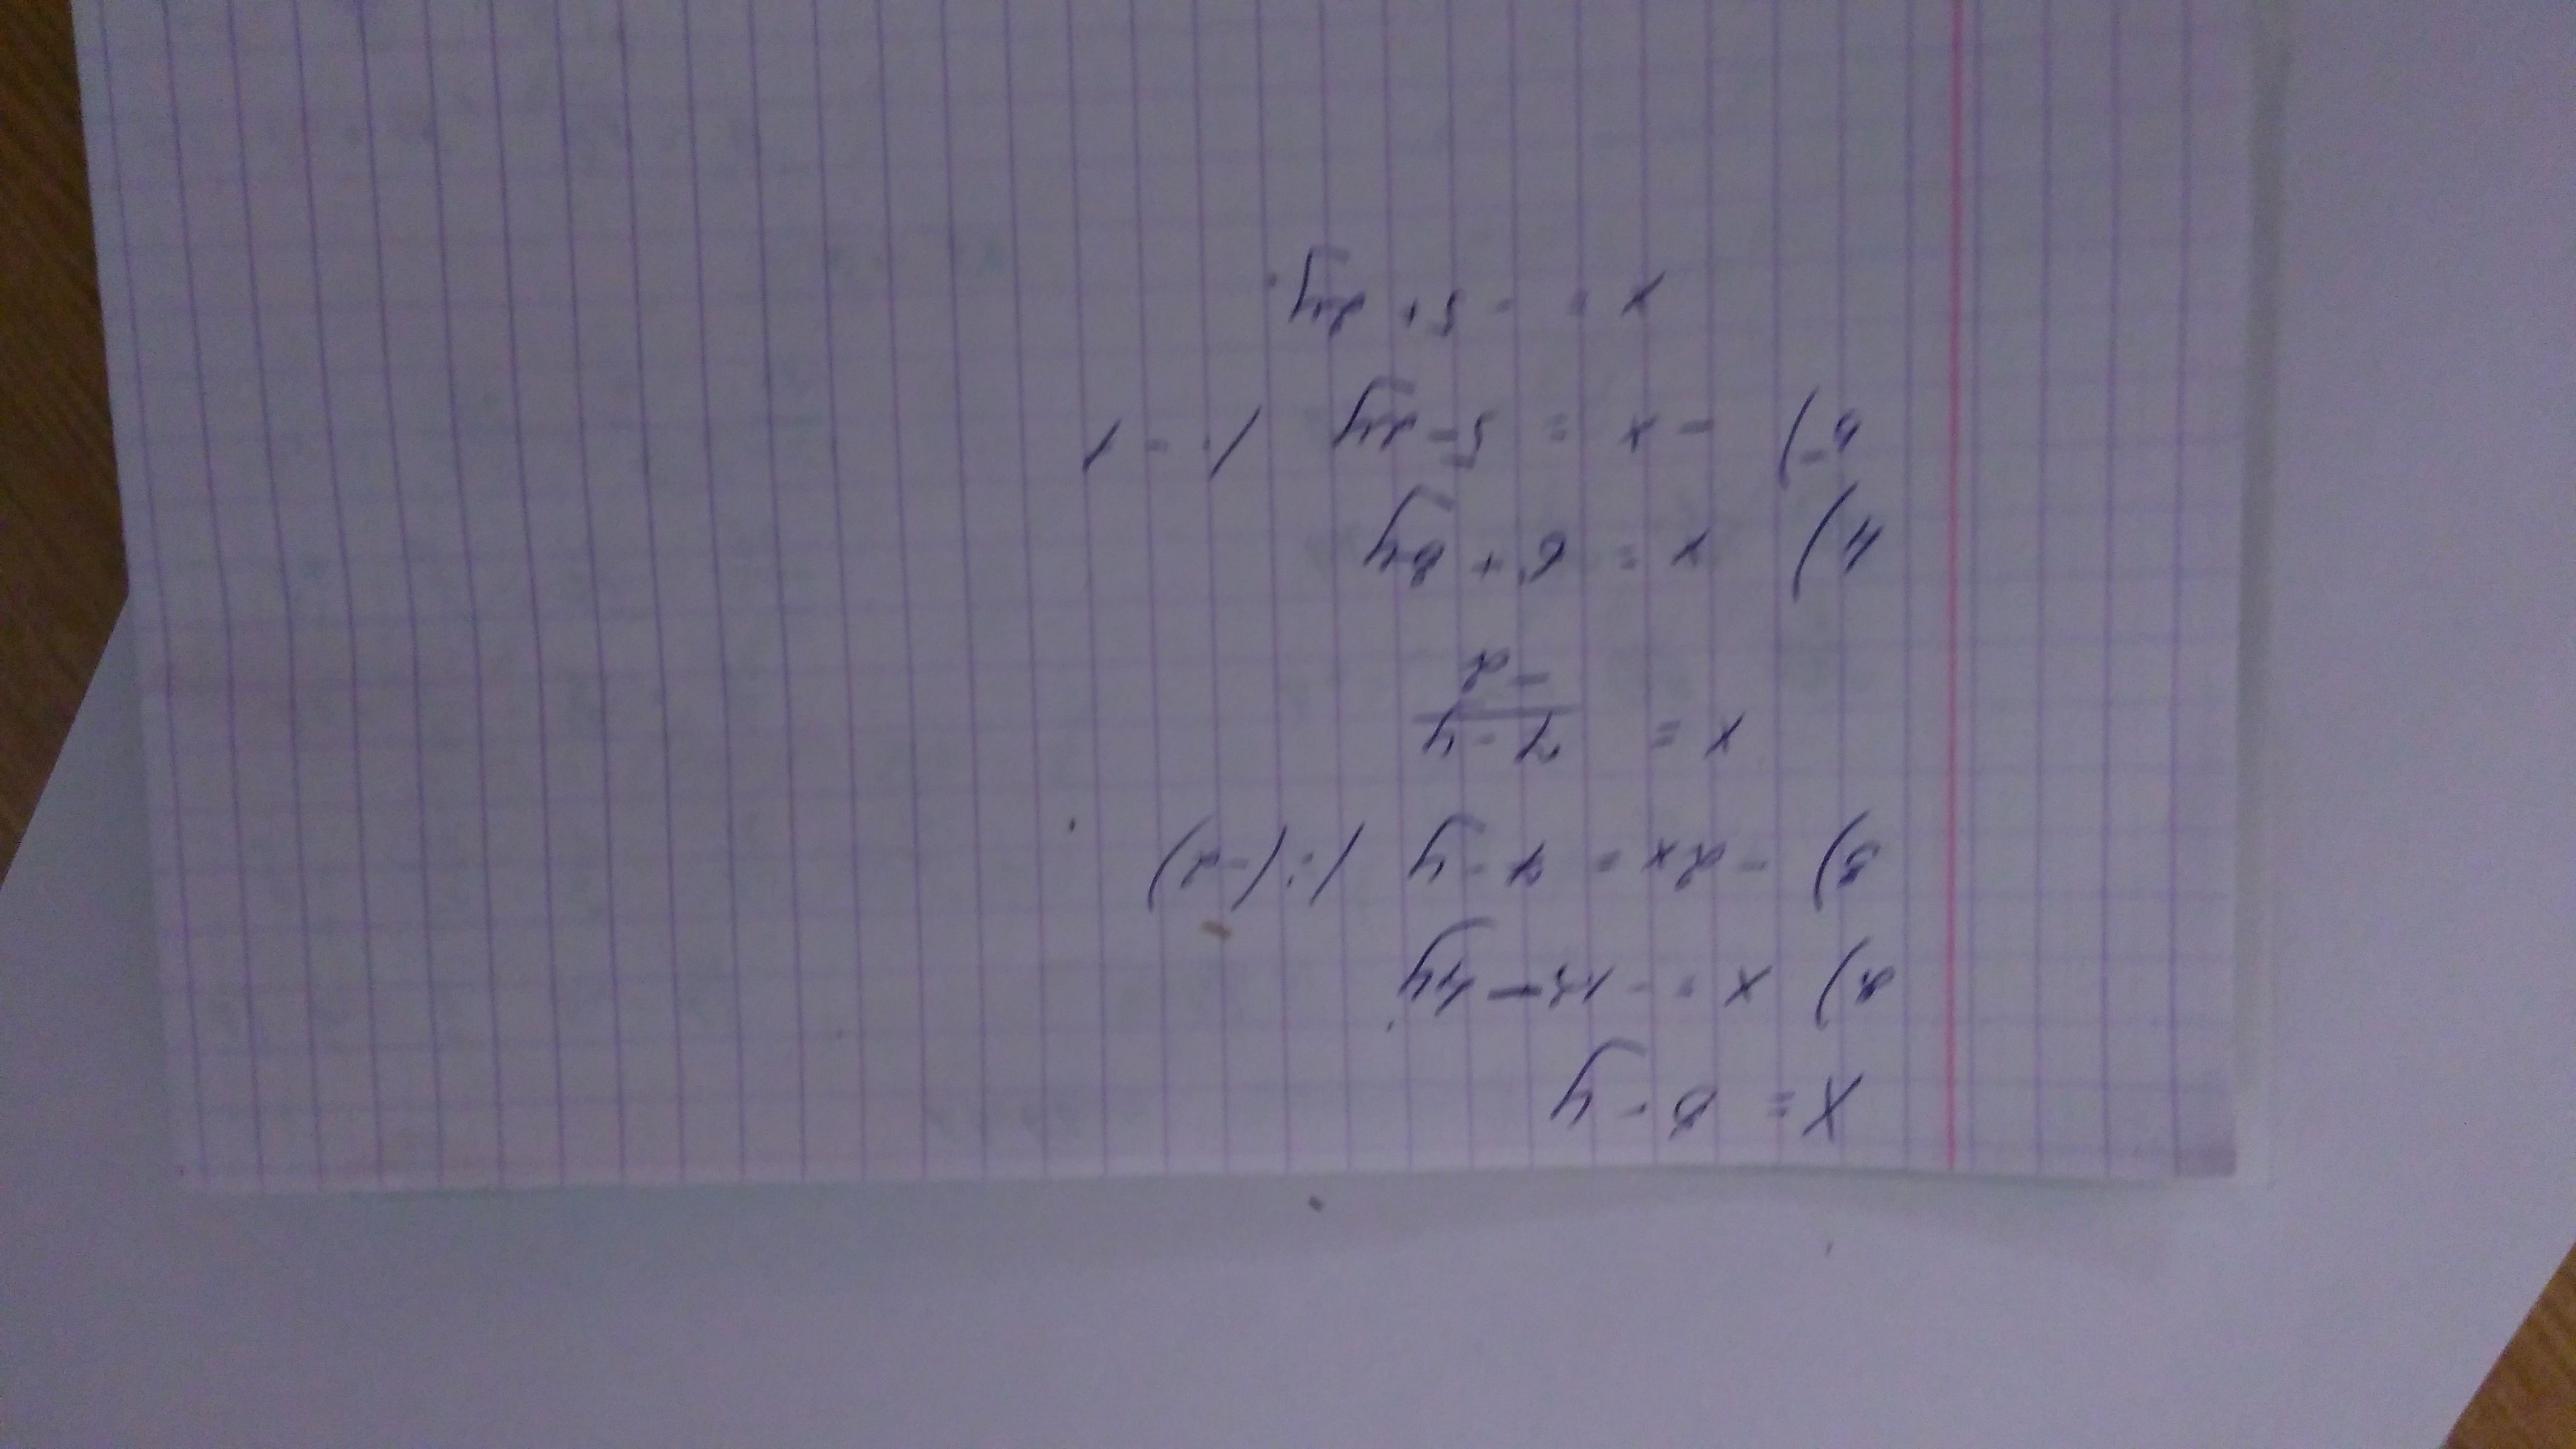 x = 8 - y
2) x = - 13 - 4y
3) - 2x = 7 - y | : (-2)
x = 7 - y / - 2
4) x = 6 + 8y
5) - x = 5 - 2y | : - 1
x = - 5 + 2y.